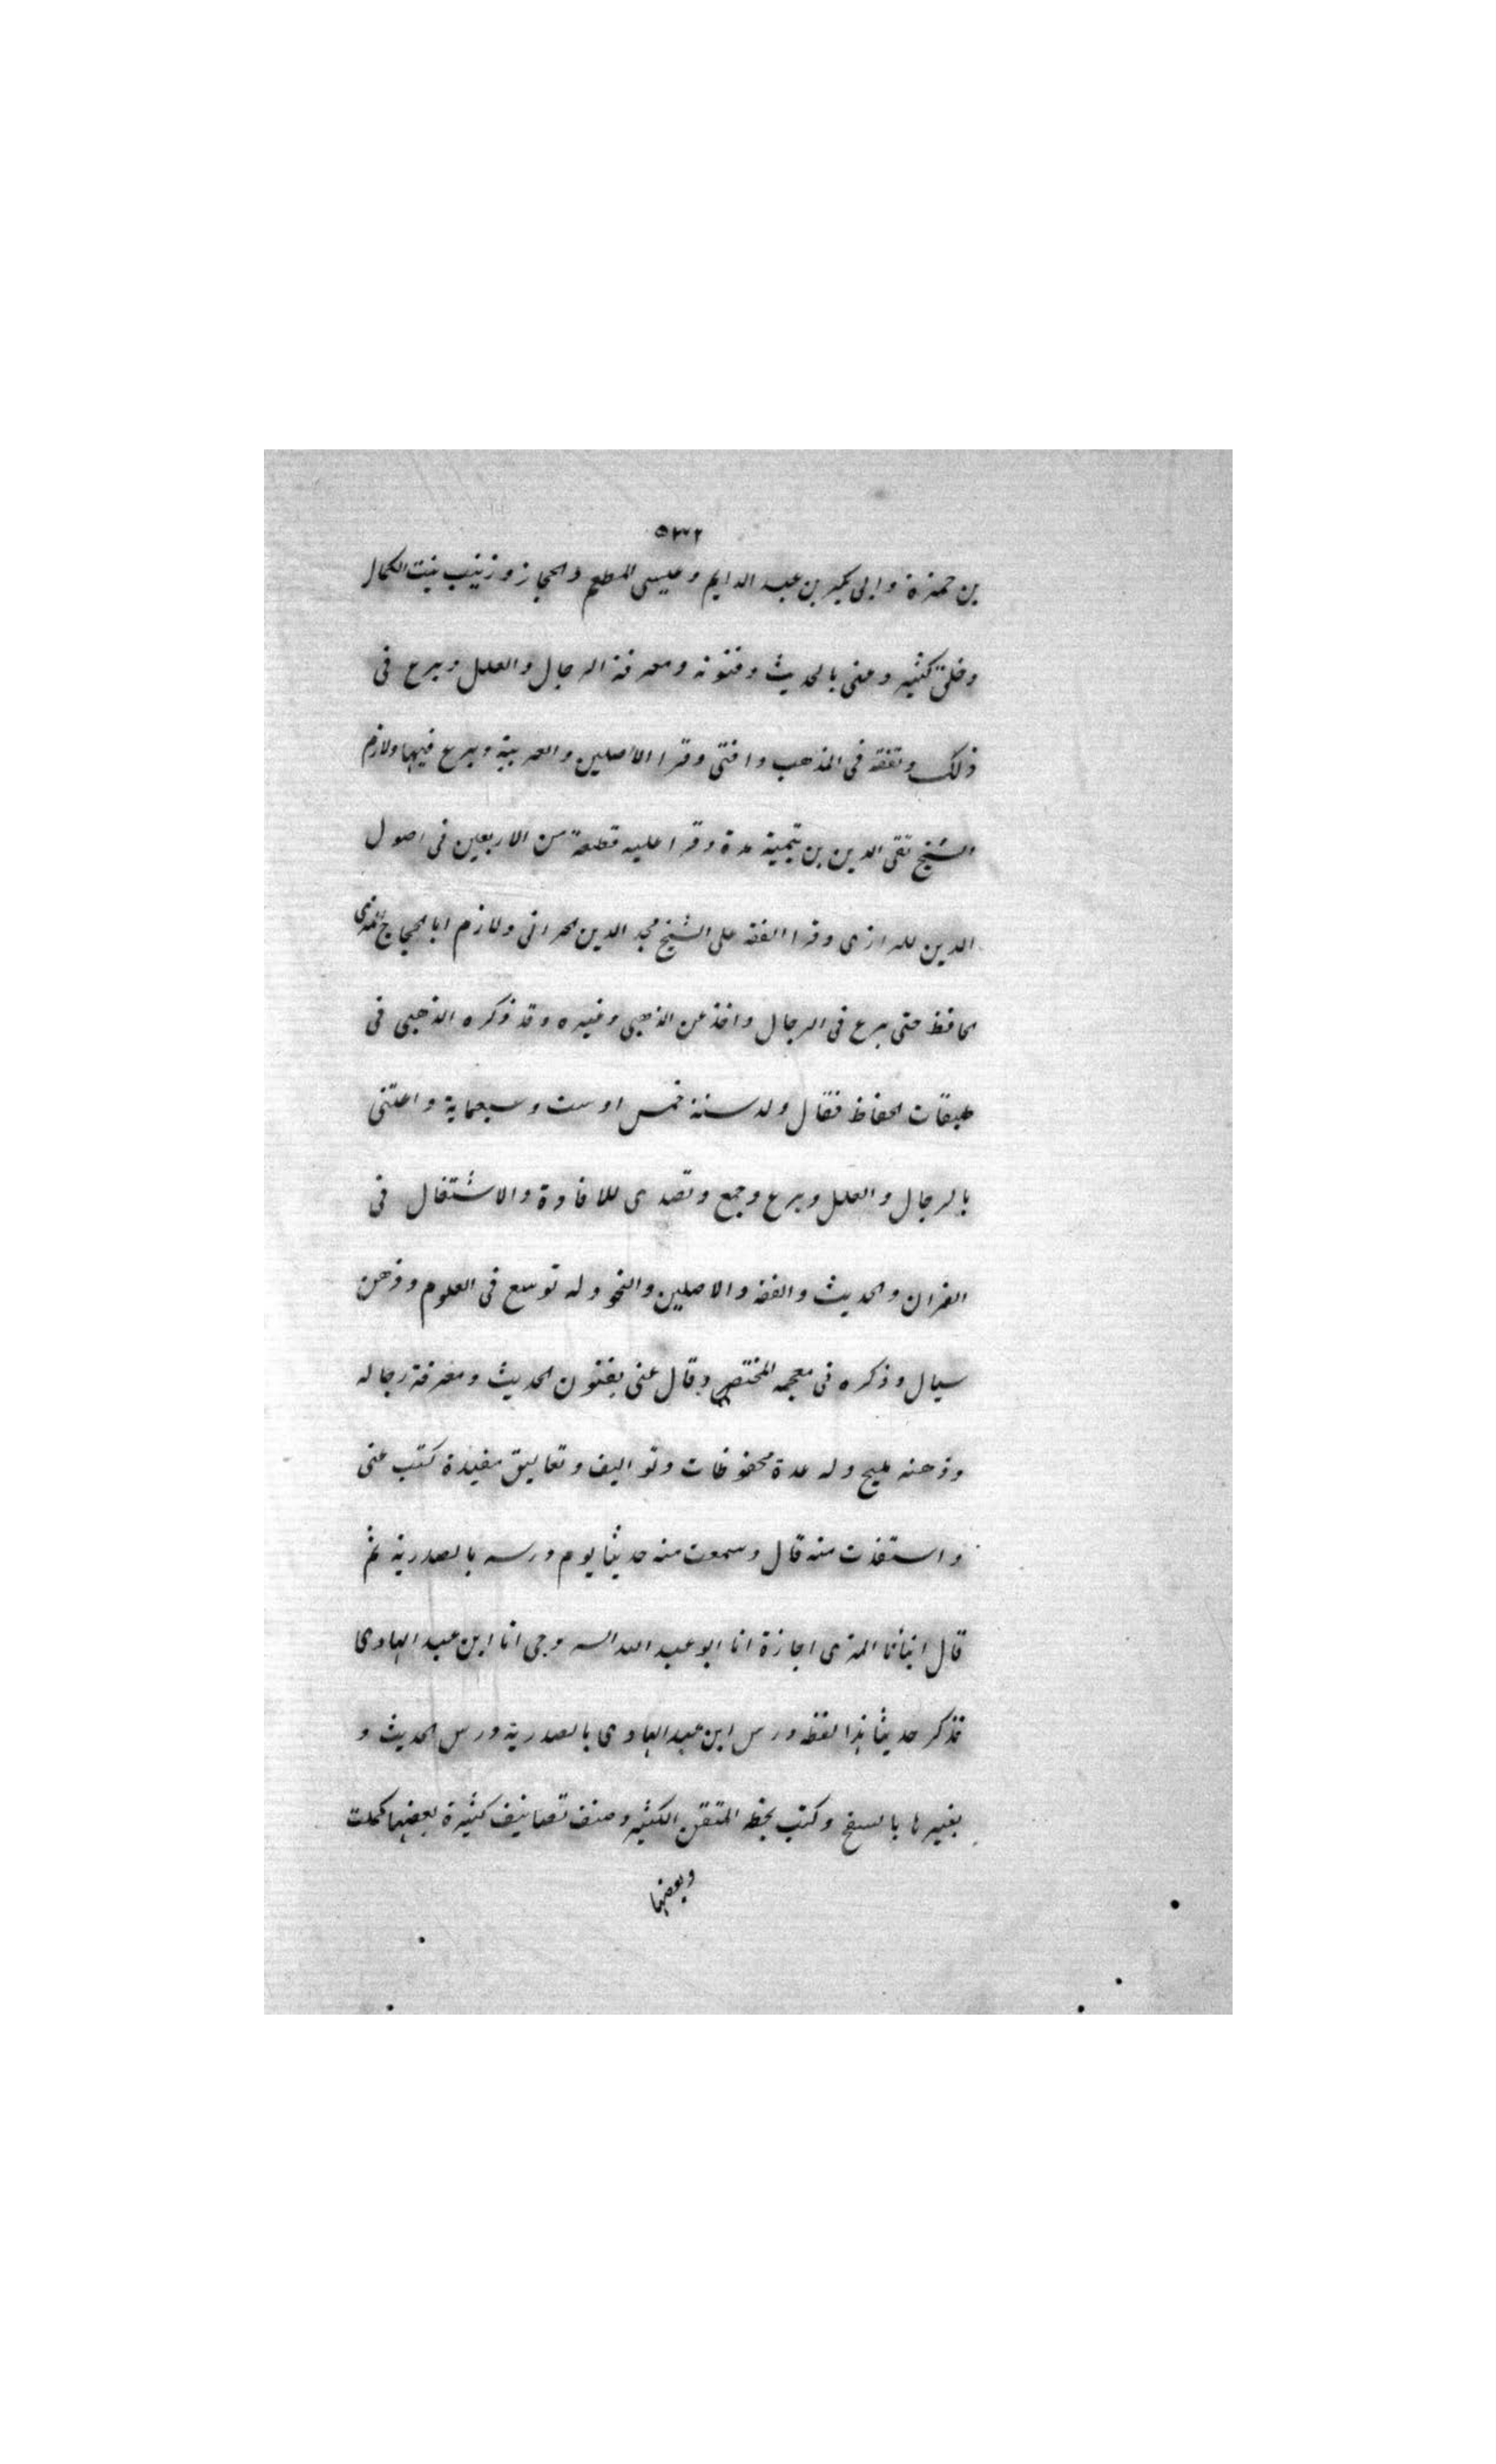 ٥٣٢
بن حمزة وابى بكير بن عبد الدايم وعيسى المطعم والحجاز وزينب بنت الكمال
وخلق كثير وعنى بالحديث وفنونه ومعرفة الرجال والعلل وبرع فى
ذلك وتفقه فى المذهب وافتى وقرا الاصلين والعربية وبرع فيها ولازم
الشيخ تقى الدين بن تيمية مدة وقرا عليه قطعة من الاربعين فى اصول
الدين للرازى وقرا الفقه على الشيخ مجد الدين الحرانى ولازم ابا الحجاج المزى
الحافظ حتى برع فى الرجال واخذ عن الذهبى وغيره وقد ذكره الذهبى فى
طبقات الحفاظ فقال ولد سنة خمس او ست وسبعماية واعتنى
بالرجال والعلل وبرع وجمع وتصدى للافادة والاشتغال فى
القران والحديث والفقه والاصلين والنحو وله توسع فى العلوم وذهن
سيال وذكره فى معجمه المختص وقال عنى بفنون الحديث ومعرفة رجاله
وذهنه مليح وله عدة محفوظات وتواليف وتعاليق مفيدة كتب عنى
واستفدت منه قال وسمعت منه حديثا يوم درسه بالصدرية ثم
قال انبأنا المزى اجازة انا ابو عبد الله السروجى انا ابن عبد الهادى
فذكر حديثا هذا لفظه درس ابن عبد الهادى بالصدرية درس الحديث و
بغيرها بالسفح وكتب بخطه المتقن الكثير وصنف تصانيف كثيرة بعضها كملت
وبعضها